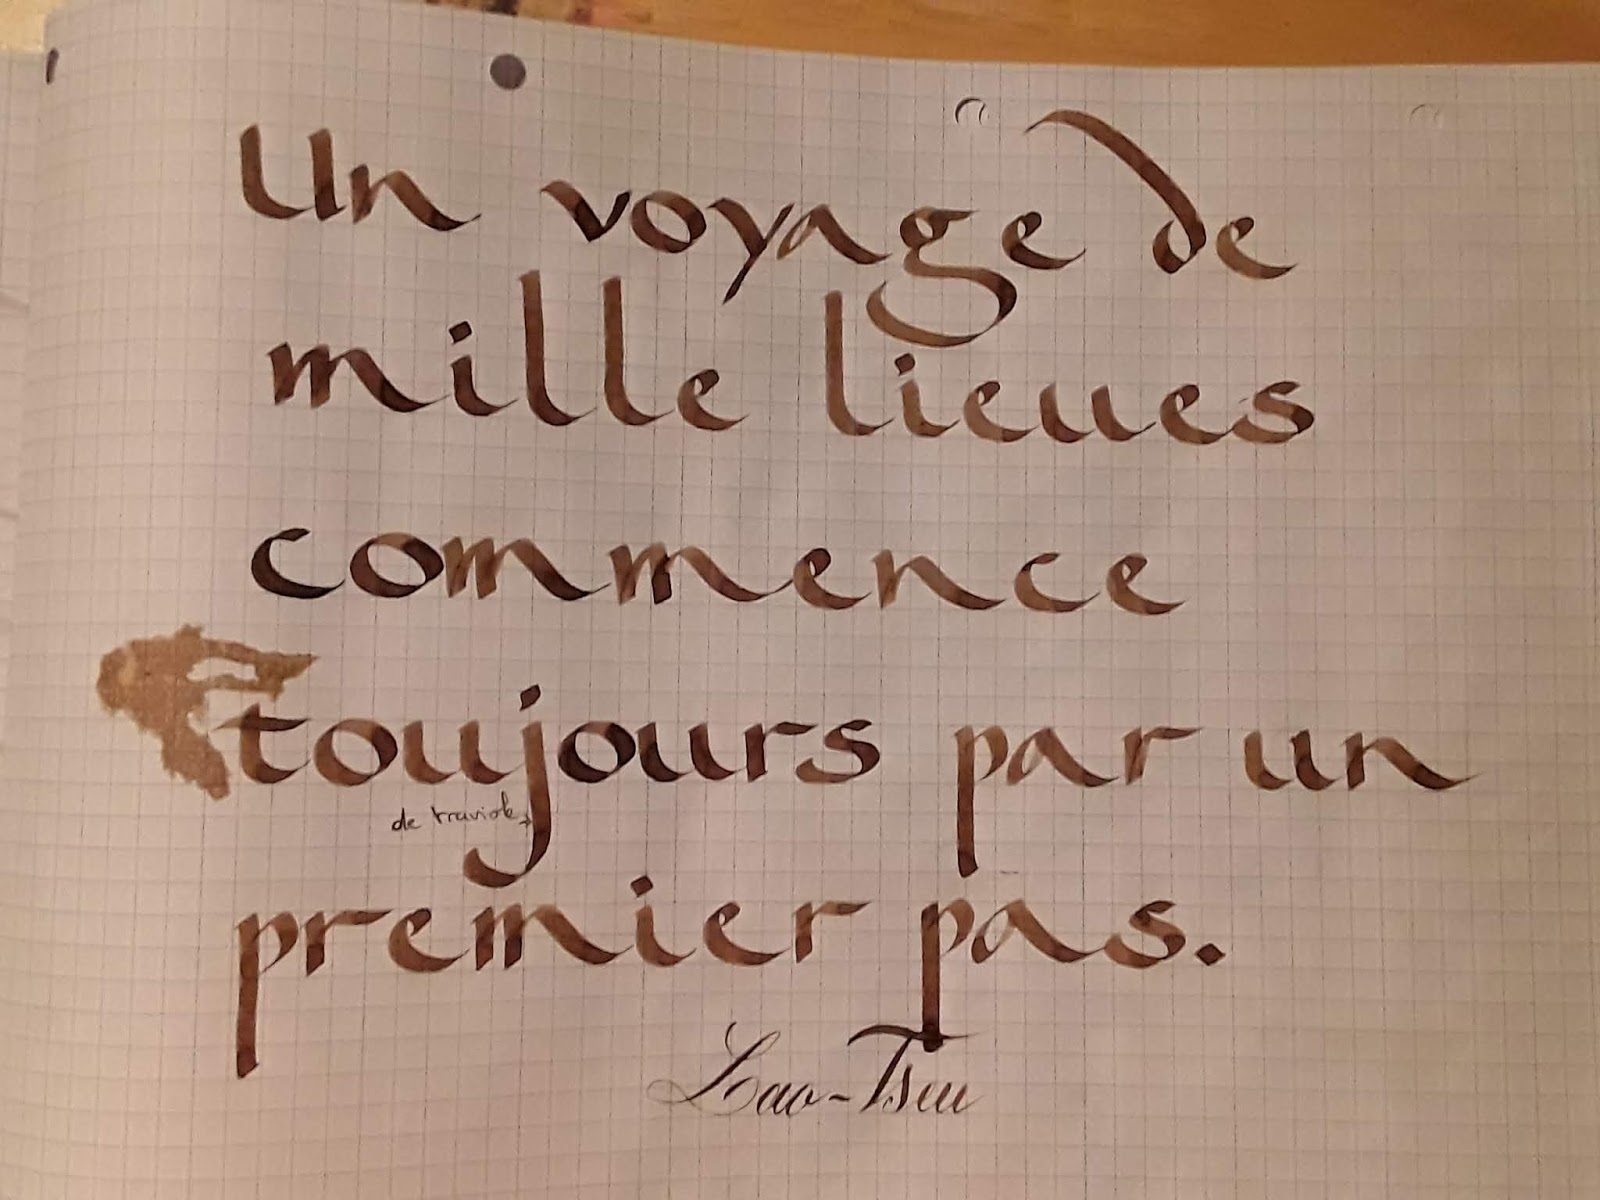 Un voyage de
mille lieues
commence
toujours par un
de traviole
premier pas.
Lao-Tseu